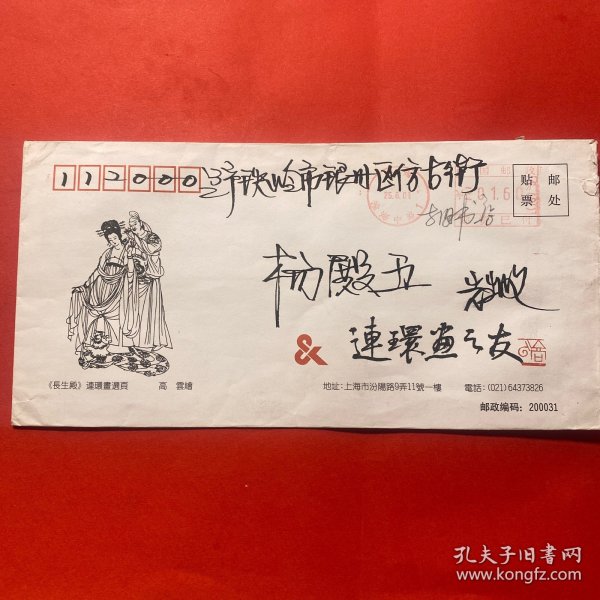 112000
辽宁铁岭市银州区仿古街
古旧书店
贴票
邮处
杨殿五
&
連環画之友
《長生殿》連環畫選頁 高雲繪
地址:上海市汾陽路9弄11號一樓 電話:(021)64373826
邮政编码: 200031
孔夫子旧书网
www.kongfz.com